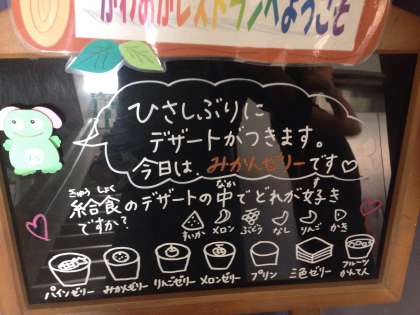 かわおかレストランへようこそ
ひさしぶりに
デザートがつきます。
今日は、みかんゼリーです♡
きゅう しょく なか す
給食のデザートの中でどれが好き
ですか?
すいか メロン ぶどう なし りんご かき
パインゼリー みかんゼリー りんごゼリー メロンゼリー プリン 三色ゼリー フルーツかんてん